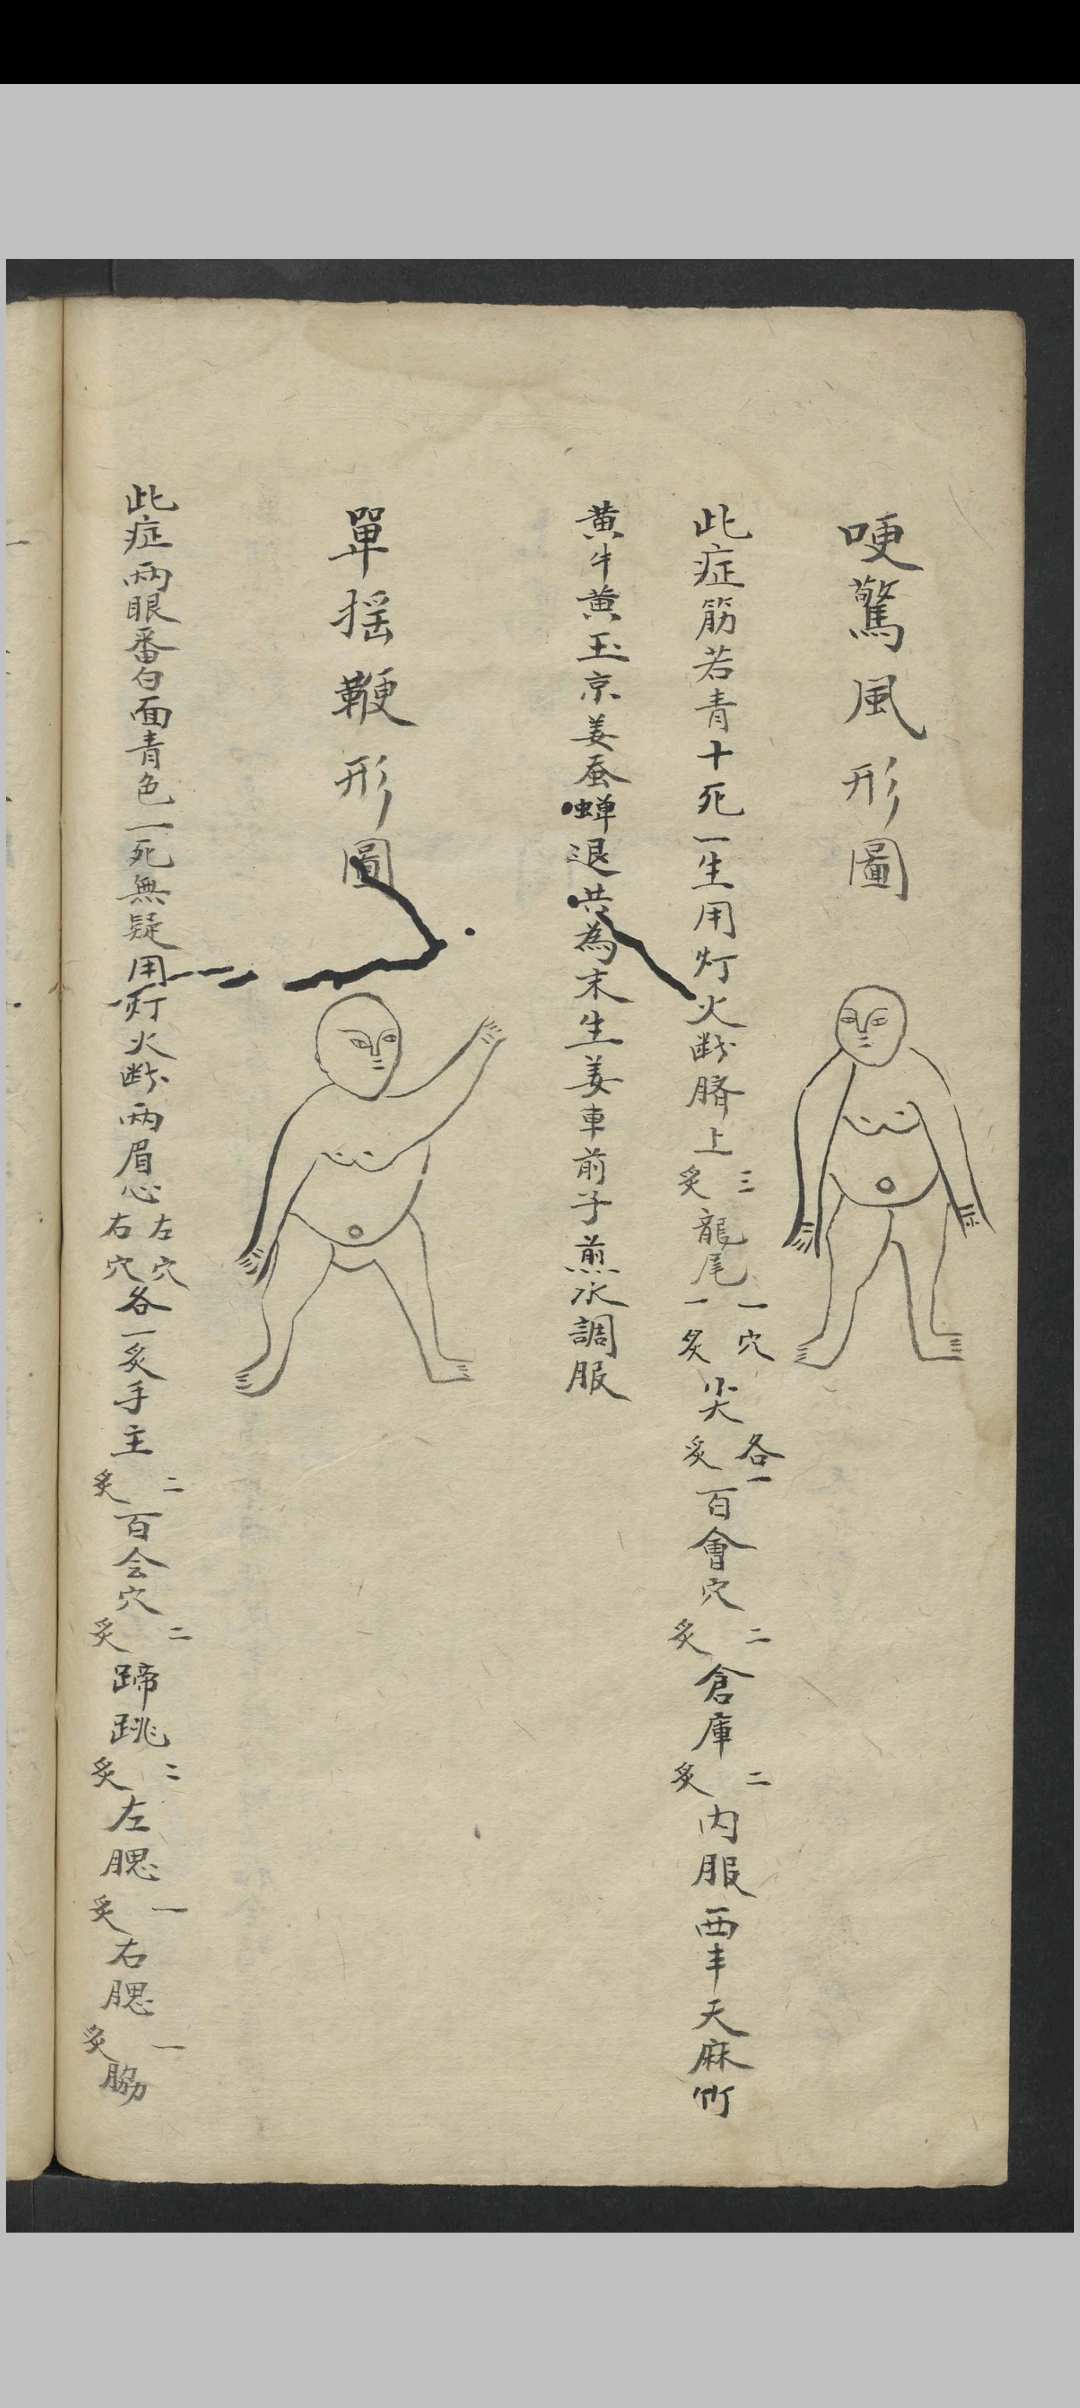 哽驚風形圖
此症筋若青十死一生用灯火断臍上三炙龍尾一穴一炙尖各一炙百會穴二炙倉庫二炙内服西丰天麻竹
黄牛黄玉京姜蚕蝉退共為末生姜車前子煎水調服
單揺鞭形圖
此症兩眼番白面青色一死無疑用灯火断兩眉心左穴右穴各一炙手主二炙百会穴二炙蹄跳二炙左腮一炙右腮一炙脇